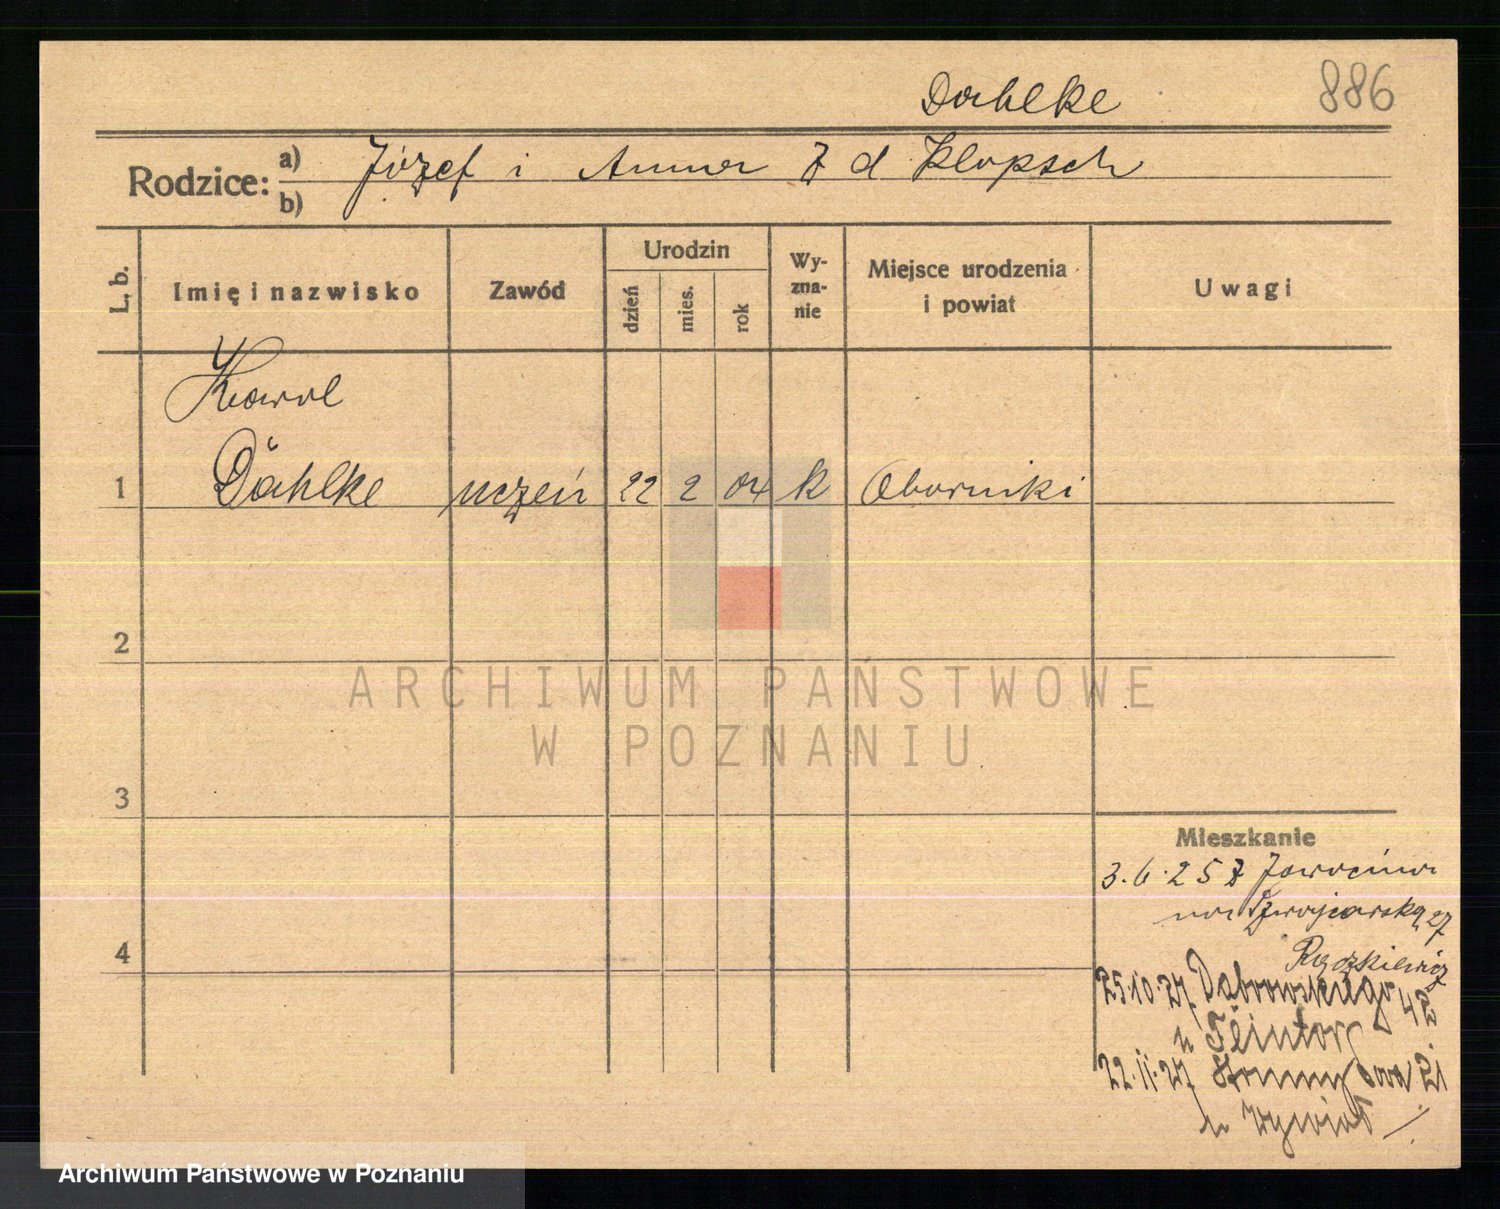 Dahlke
886
Rodzice: a) Józef i Anna z d Klopsch
b)
L. b.
Imię i nazwisko
Zawód
Urodzin
dzień
mies.
rok
Wy-
zna-
nie
Miejsce urodzenia
i powiat
Uwagi
Karol
1 Dählke uczeń 22 2 04 k Oborniki
2
ARCHIWUM PAŃSTWOWE
W POZNANIU
3
Mieszkanie
3.6.25 z Jarocina
27
4
25.10.27 Dąbrowskiego 42
u
22.11.27 21
u
Archiwum Państwowe w Poznaniu